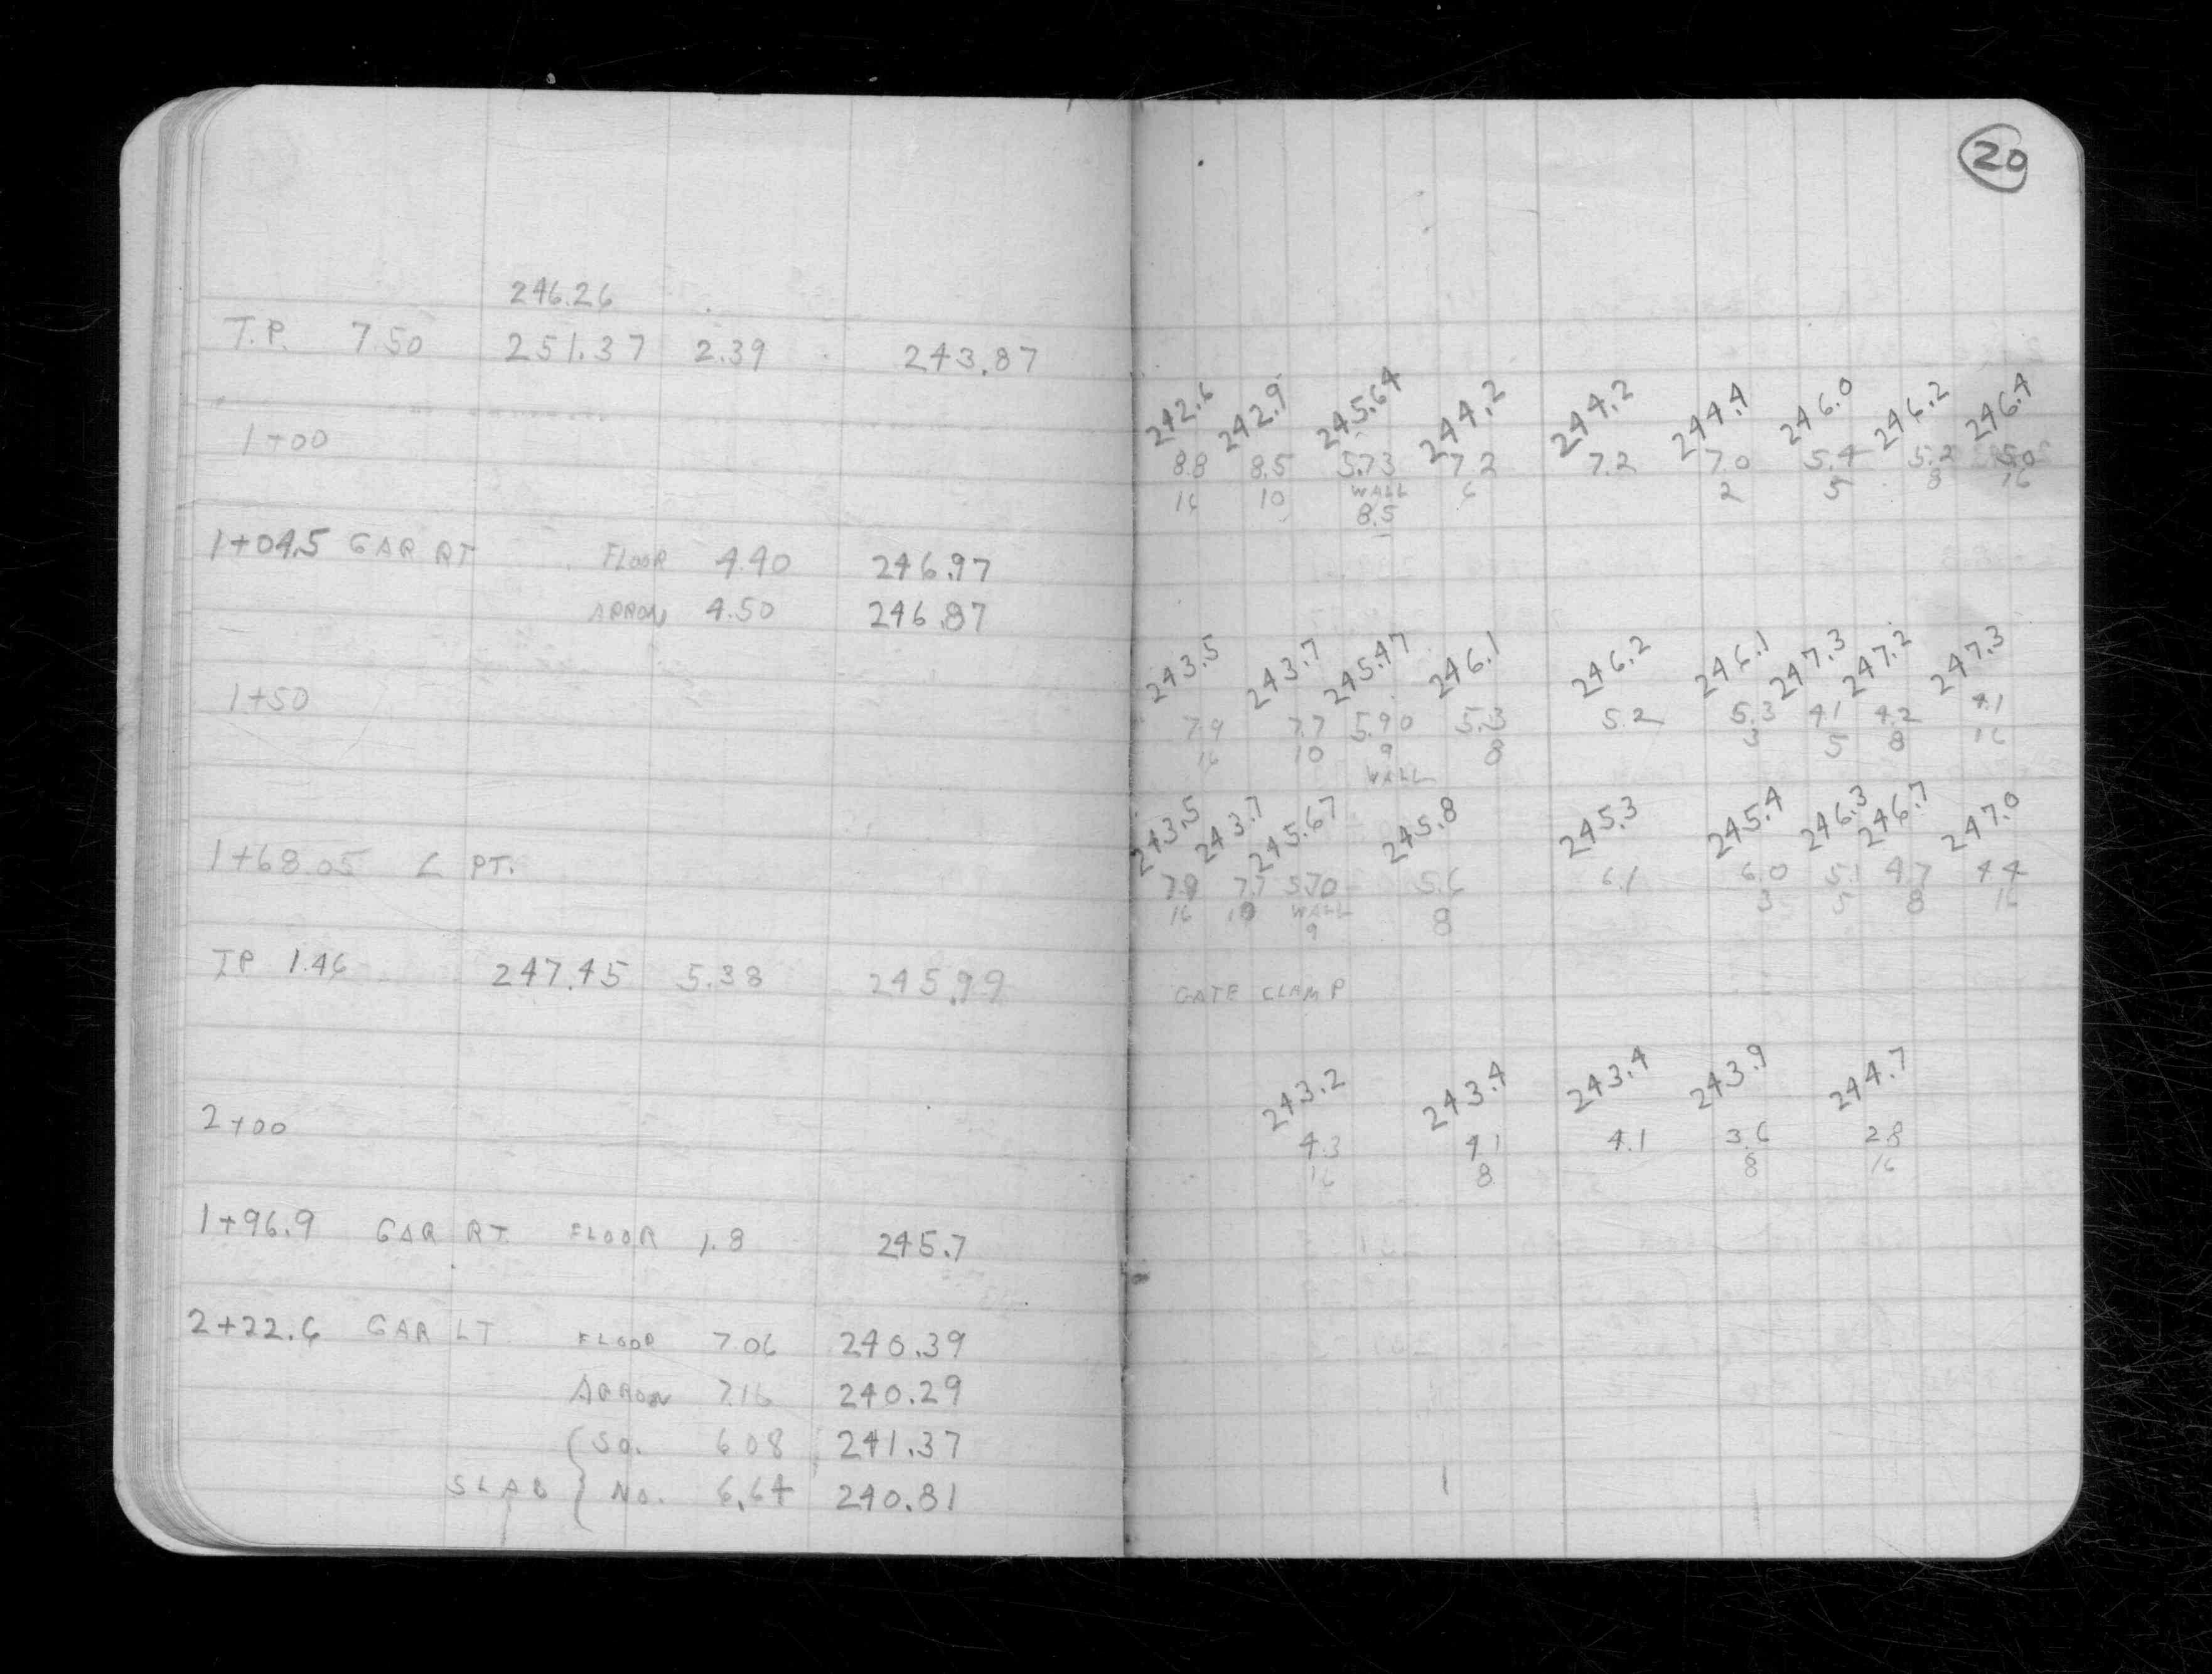 20
246.26
T.P. 7.50 251.37 2.39 243.87
242.6 242.9 245.64 244.2 244.2 244.4 246.0 246.2 246.4
1+00 8.8 8.5 5.73 7.2 7.2 7.0 5.4 5.2 5.0
16 10 WALL 6 2 5 8 16
8.5
1+04.5 GAR RT FLOOR 4.40 246.97
APRON 4.50 246.87
243.5 243.7 245.47 246.1 246.2 246.1 247.3 247.2 247.3
1+50 7.9 7.7 5.90 5.3 5.2 5.3 4.1 4.2 4.1
16 10 9 8 3 5 8 16
WALL
243.5 243.7 245.67 245.8 245.3 245.4 246.3 246.7 247.0
1+68.05 ∠ PT. 7.9 7.7 5.70 5.6 6.1 6.0 5.1 4.7 4.4
16 10 WALL 8 3 5 8 16
9
T.P 1.46 247.45 5.38 245.99 GATE CLAMP
243.2 243.4 243.4 243.9 244.7
2+00 4.3 4.1 4.1 3.6 2.8
16 8 8 16
1+96.9 GAR RT. FLOOR 1.8 245.7
2+22.6 GAR LT FLOOR 7.06 240.39
APRON 7.16 240.29
So. 6.08 241.37
SLAB No. 6.64 240.81